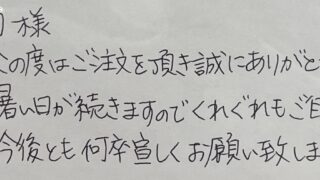 様
の度はご注文を頂き誠にありがと
暑い日が続きますのでくれぐれもご
今後とも何卒宜しくお願い致しま